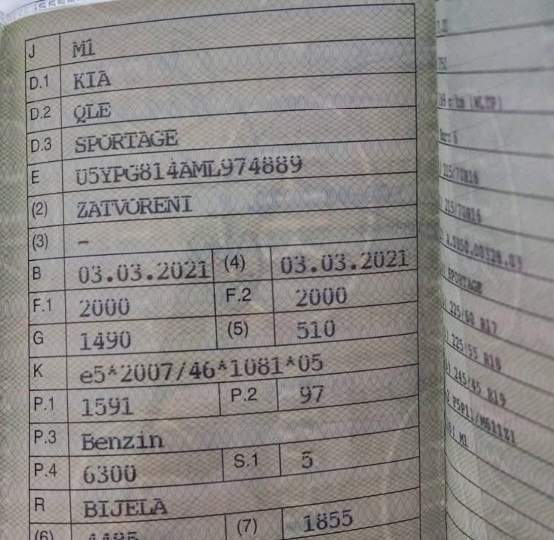 J M1
D.1 KIA
D.2 QLE
D.3 SPORTAGE
E U5YPG814AML974889
(2) ZATVORENI
(3) -
B 03.03.2021 (4) 03.03.2021
F.1 2000 F.2 2000
G 1490 (5) 510
K e5*2007/46*1081*05
P.1 1591 P.2 97
P.3 Benzin
P.4 6300 S.1 5
R BIJELA
(6) 4485 (7) 1855
g/km (WLTP)
215/70R16
215/70R16
SPORTAGE
225/60 R17
225/55 R18
245/45 R19
M1